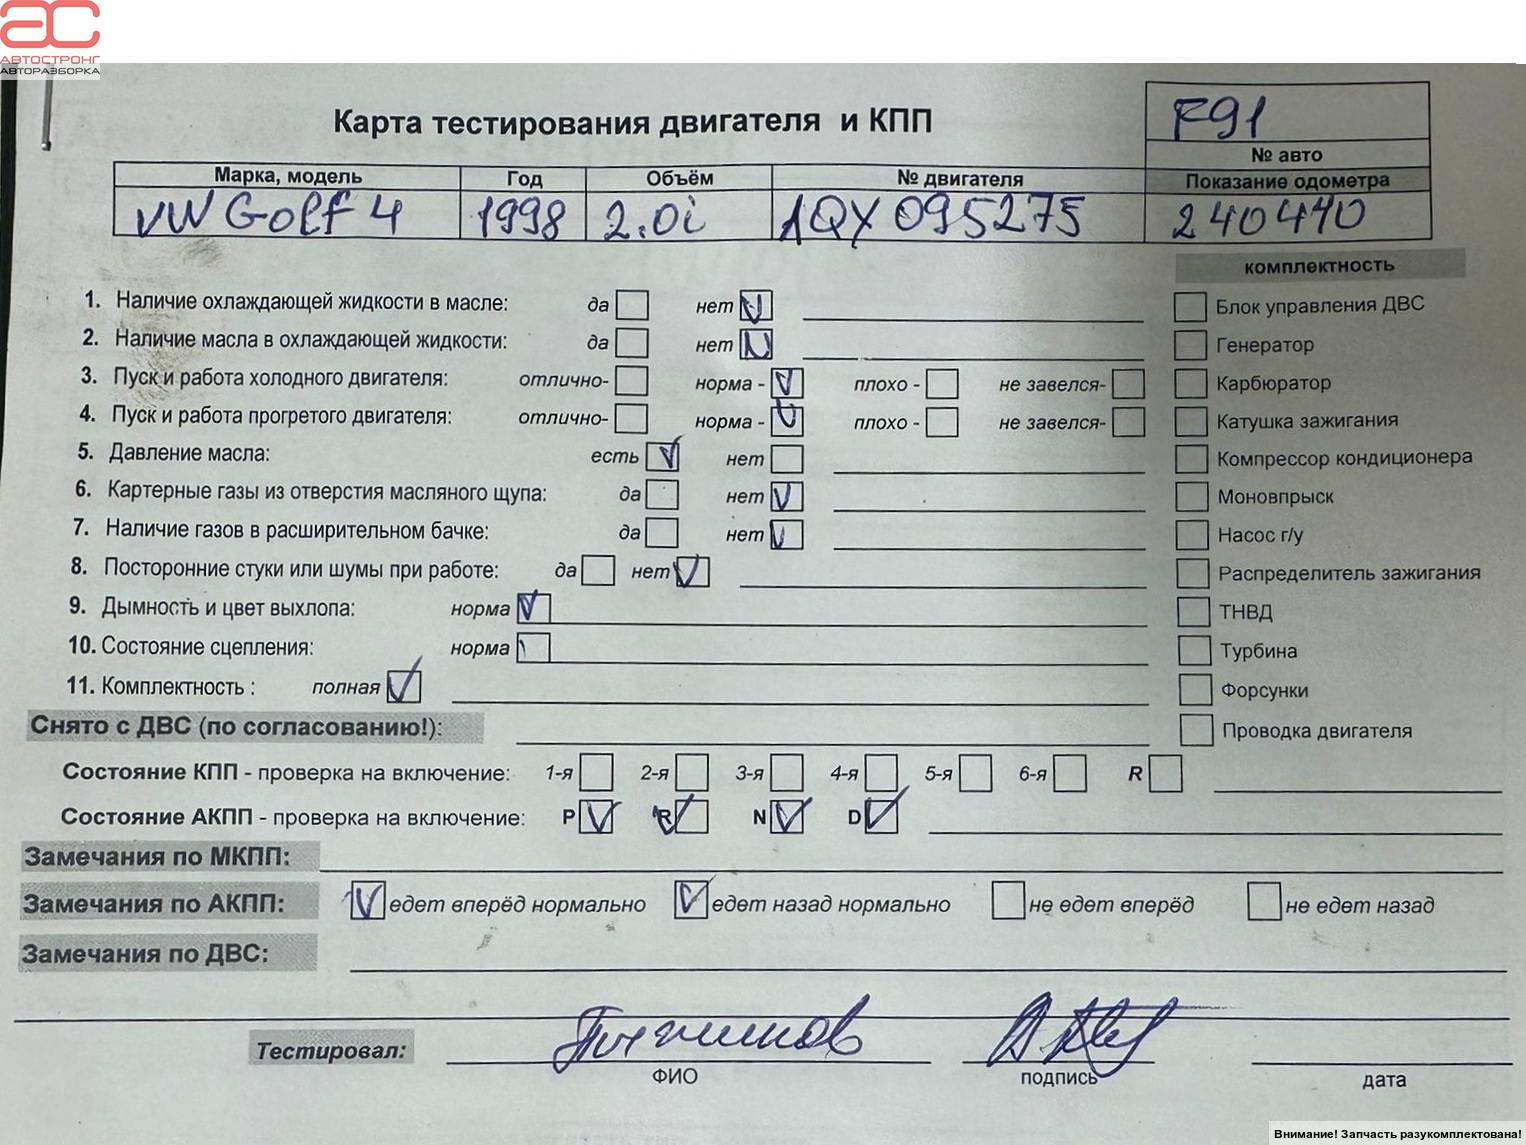 АВТОСТРОНГ
АВТОРАЗБОРКА
Карта тестирования двигателя и КПП
F91
№ авто
Марка, модель Год Объём № двигателя Показание одометра
VW Golf 4 1998 2.0i AQY 095275 240440
комплектность
1. Наличие охлаждающей жидкости в масле: да нет
Блок управления ДВС
2. Наличие масла в охлаждающей жидкости: да нет
Генератор
3. Пуск и работа холодного двигателя: отлично- норма - плохо - не завелся-
Карбюратор
4. Пуск и работа прогретого двигателя: отлично- норма - плохо - не завелся-
Катушка зажигания
5. Давление масла: есть нет
Компрессор кондиционера
6. Картерные газы из отверстия масляного щупа: да нет
Моновпрыск
7. Наличие газов в расширительном бачке: да нет
Насос г/у
8. Посторонние стуки или шумы при работе: да нет
Распределитель зажигания
9. Дымность и цвет выхлопа: норма
ТНВД
10. Состояние сцепления: норма
Турбина
11. Комплектность : полная
Форсунки
Снято с ДВС (по согласованию!):
Проводка двигателя
Состояние КПП - проверка на включение: 1-я 2-я 3-я 4-я 5-я 6-я R
Состояние АКПП - проверка на включение: P R N D
Замечания по МКПП:
Замечания по АКПП: едет вперёд нормально едет назад нормально не едет вперёд не едет назад
Замечания по ДВС:
Тестировал:
ФИО подпись дата
Внимание! Запчасть разукомплектована!